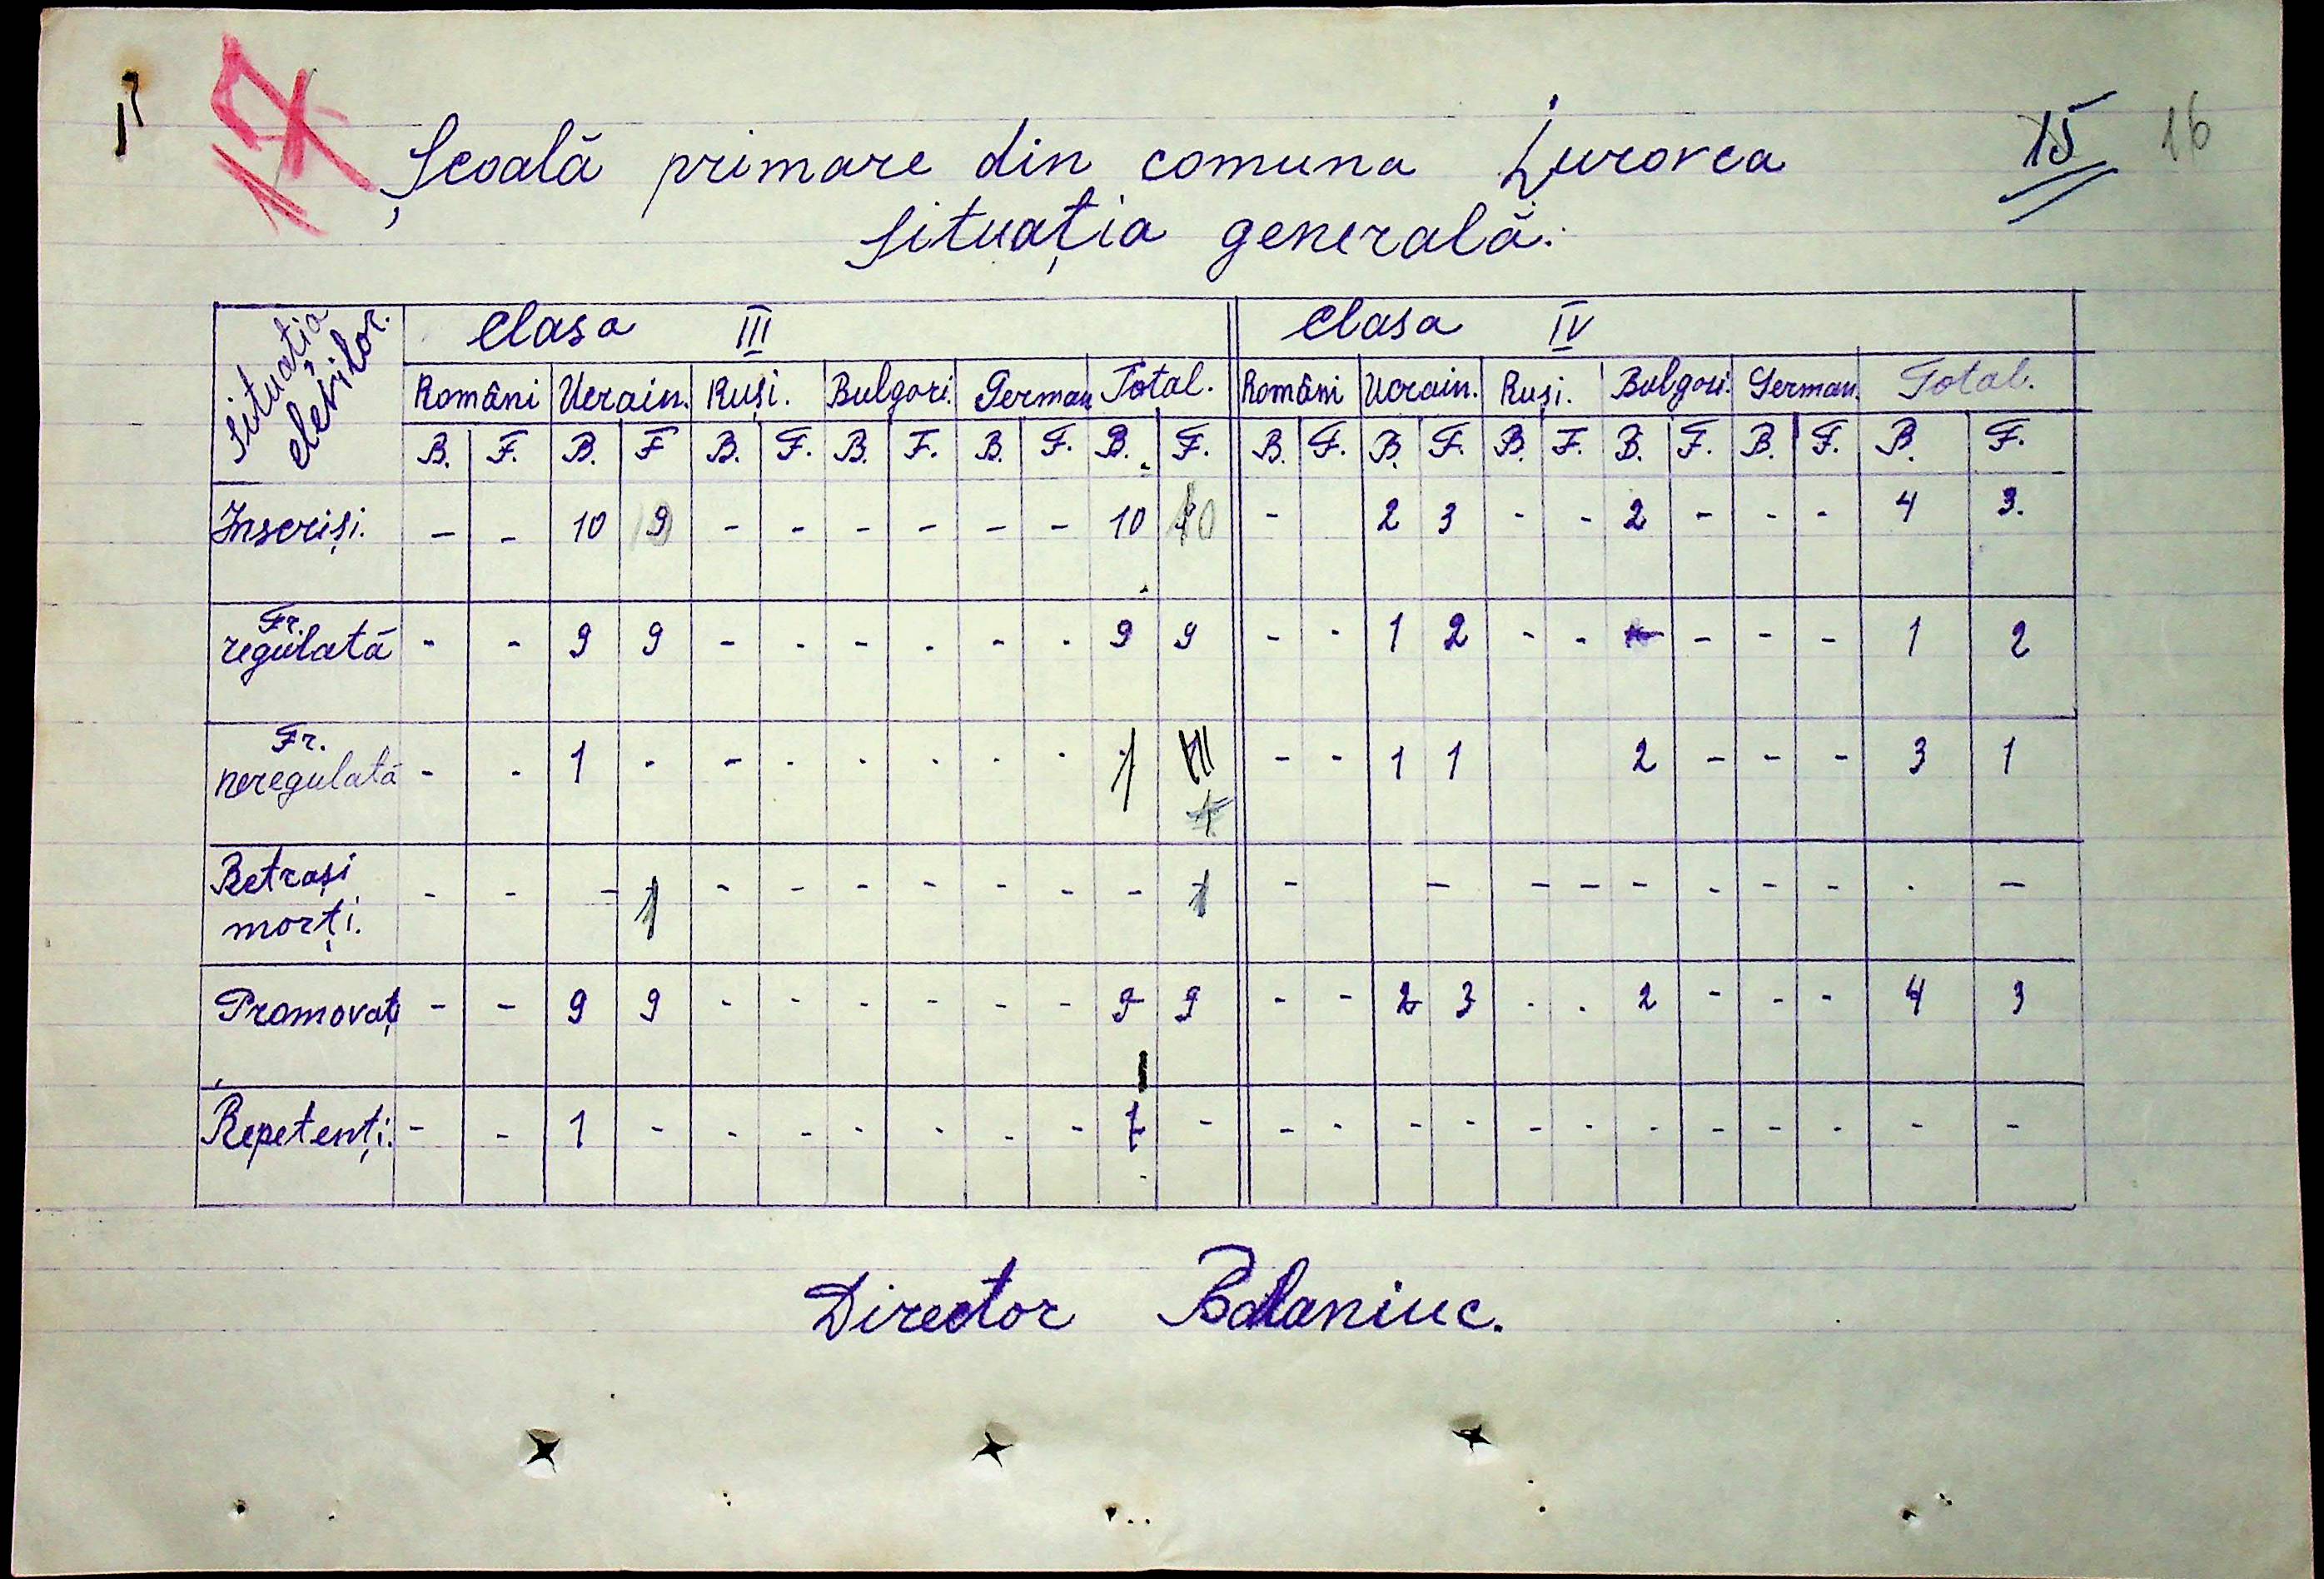 17 15 16
Școală primare din comuna Jurovca
Situația generală.
Situația elevilor. Clasa III Clasa IV
Români Ucrain. Ruși. Bulgari. German Total. Români Ucrain. Ruși. Bulgari. German. Total.
B. F. B. F B. F. B. F. B. F. B. F. B. F. B. F. B. F. B. F. B. F. B. F.
Inseriși. - - 10 9 - - - - - - 10 10 - 2 3 - - 2 - - - 4 3.
Fr. regulată - - 9 9 - - - - - - 9 9 - - 1 2 - - - - - - 1 2
Fr. neregulată - - 1 - - - - - - - 1 - - 1 1 2 - - - 3 1
Retrași morți. - - - 1 - - - - - - - 1 - - - - - - - - - -
Promovați - - 9 9 - - - - - - 9 9 - - 2 3 - - 2 - - - 4 3
Repetenți. - - 1 - - - - - - - 1 - - - - - - - - - - - - -
Director